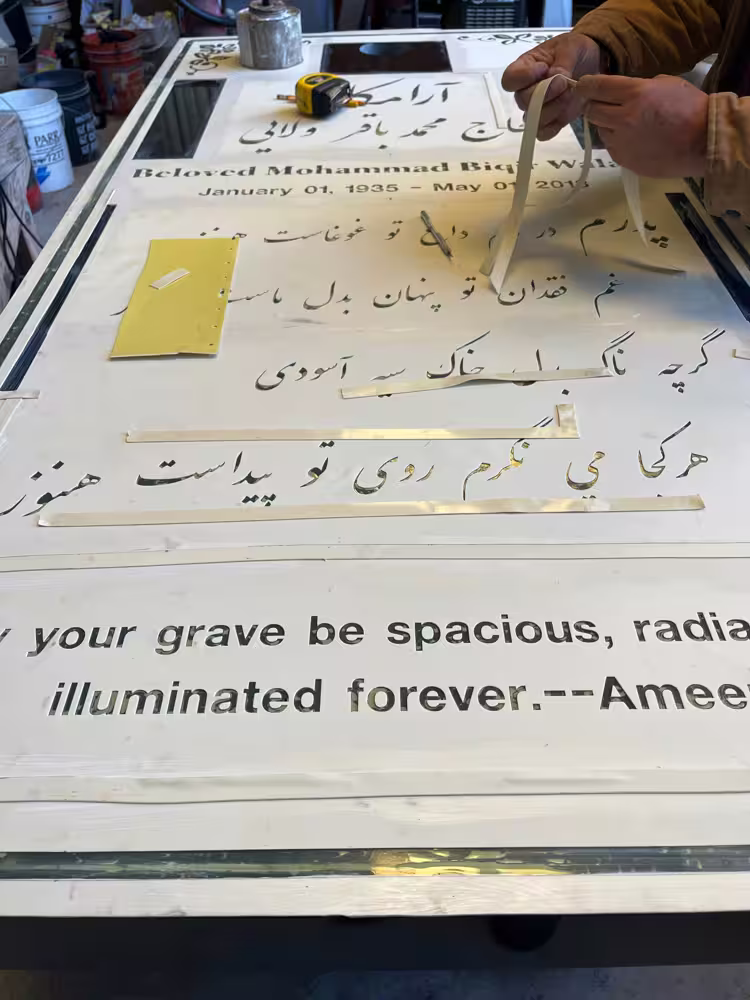 حاج محمد باقر ولایی
Beloved Mohammad Biqir
January 01, 1935 - May 01,
پدرم در داغ تو غوغاست
غم فقدان تو پنهان بدل ماست
گرچه خاک سیه آسودی
هرکجا می نگرم روی تو پیداست هنوز
your grave be spacious,
illuminated forever.--Amee
PARK